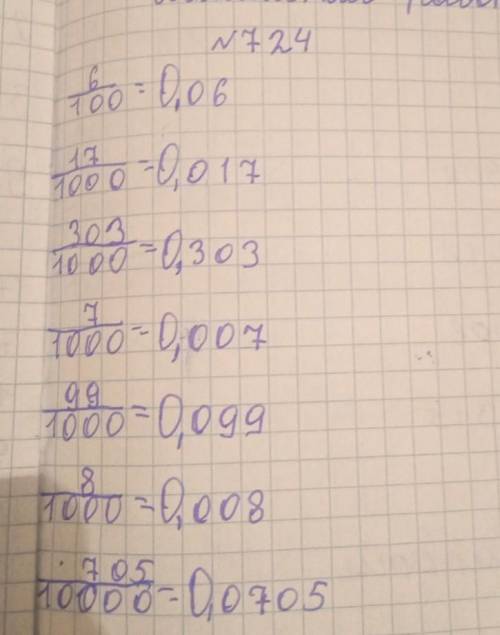 №724
6/100 = 0,06
17/1000 = 0,017
303/1000 = 0,303
7/1000 = 0,007
99/1000 = 0,099
8/1000 = 0,008
705/10000 = 0,0705